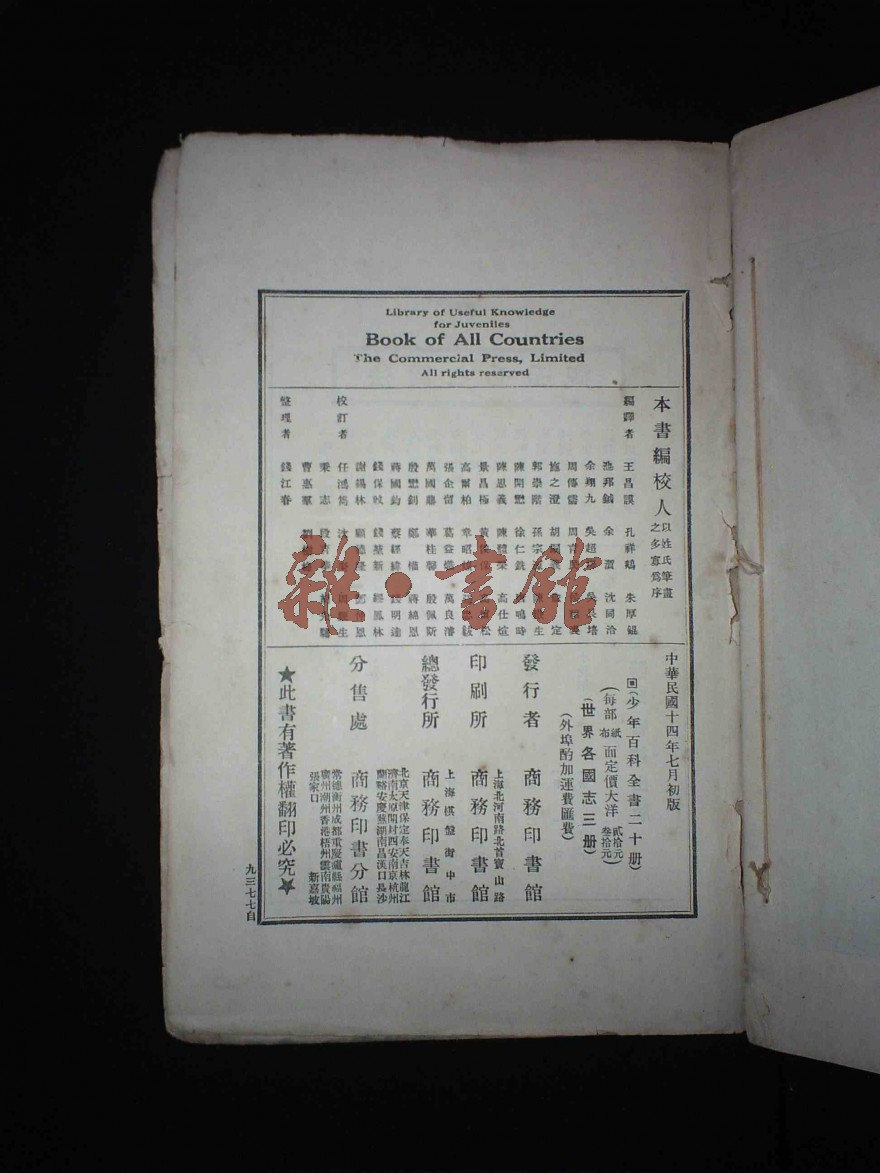 Library of Useful Knowledge
for Juveniles
Book of All Countries
The Commercial Press, Limited
All rights reserved
本書編校人
以姓氏筆畫
之多寡為序
編譯者
王昌謨 孔祥鵝 朱厚錕
余翔九 吳超
周傳儒
施之澄
郭崇階
陳開懋 徐仁銑
陳思義 陳體榮 高仕煊
景昌極
高爾柏
張企留
萬國鼎 華桂馨 殷佩斯
殷懋釗 蔣繞恩
蔣國鈞 蔡經緯 錢明逵
錢保時 錢堃新 經鳳林
謝錫林
校訂者
任鴻雋
秉志
曹惠羣
整理者
錢江春
中華民國十四年七月初版
(少年百科全書二十册)
(每部紙布面定價大洋貳拾元叁拾元)
(世界各國志三册)
(外埠酌加運費匯費)
發行者 商務印書館
上海北河南路北首寶山路
印刷所 商務印書館
上海棋盤街中市
總發行所 商務印書館
北京天津保定奉天吉林龍江
濟南太原開封西安南京杭州
蘭谿安慶蕪湖南昌漢口長沙
分售處 商務印書分館
常德衡州成都重慶瀘縣福州
廣州潮州香港梧州雲南貴陽
張家口 新嘉坡
★此書有著作權翻印必究★
九三七七自
雜·書館